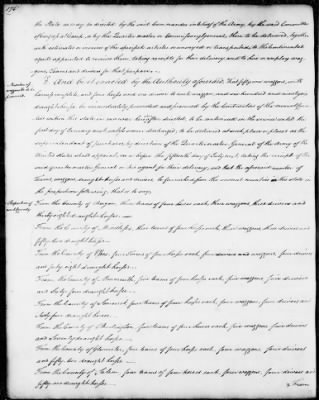 176
the State as may be directed by the said Commander in chief of the Army, by the said Committee
of Congress at Camp, or by the Quarter master or Commissary general, there to be delivered, together
with estimates or invoices of the specifick articles so conveyed or transported, to the Continental
agents appointed to receive them, taking receipts for their delivery, and to hire or employ wag-
gons, Teams and drivers for that purpose.
Number of
waggons to be
procured
And be it enacted by the Authority aforesaid, That fifty one waggons, with
harness complete, and four horses and one driver to each waggon, and one hundred and
draught horses be immediately provided and procured by the Contractors of the several
ties within this State in manner herein directed, to be continued in the service until the
first day of January next unless sooner discharged, to be delivered at such place or places as the
superintendant of purchases by direction of the Quarter master General of the Army of the
United States shall appoint, on or before the fifteenth day of July next, taking the receipt of the
said quarter master General or his agent for their delivery, and that the aforesaid number of
Teams, waggons, draught horses and drivers be furnished from the several counties in this State in
the proportion following, that is to say,
Proportion of
each County
From the County of Bergen, three teams of four horses each, three waggons, three drivers and
thirty eight draught horses.
From the County of Middlesex, three teams of four horses each, three waggons, three drivers and
fifty two draught horses.
From the County of Essex, four Teams of four horses each, four waggons, four drivers
and forty eight draught horses.
From the County of Monmouth, five teams of four horses each, five waggons, five drivers
and sixty four draught horses.
From the County of Somerset, five teams of four horses each, five waggons, five drivers and
sixty four draught horses.
From the County of Burlington, five teams of four horses each, five waggons, five drivers
and seventy draught horses.
From the County of Gloucester, four teams of four horses each, four waggons, four drivers
and fifty two draught horses.
From the County of Salem, four teams of four horses each, four waggons, four drivers and
fifty one draught horses.
From